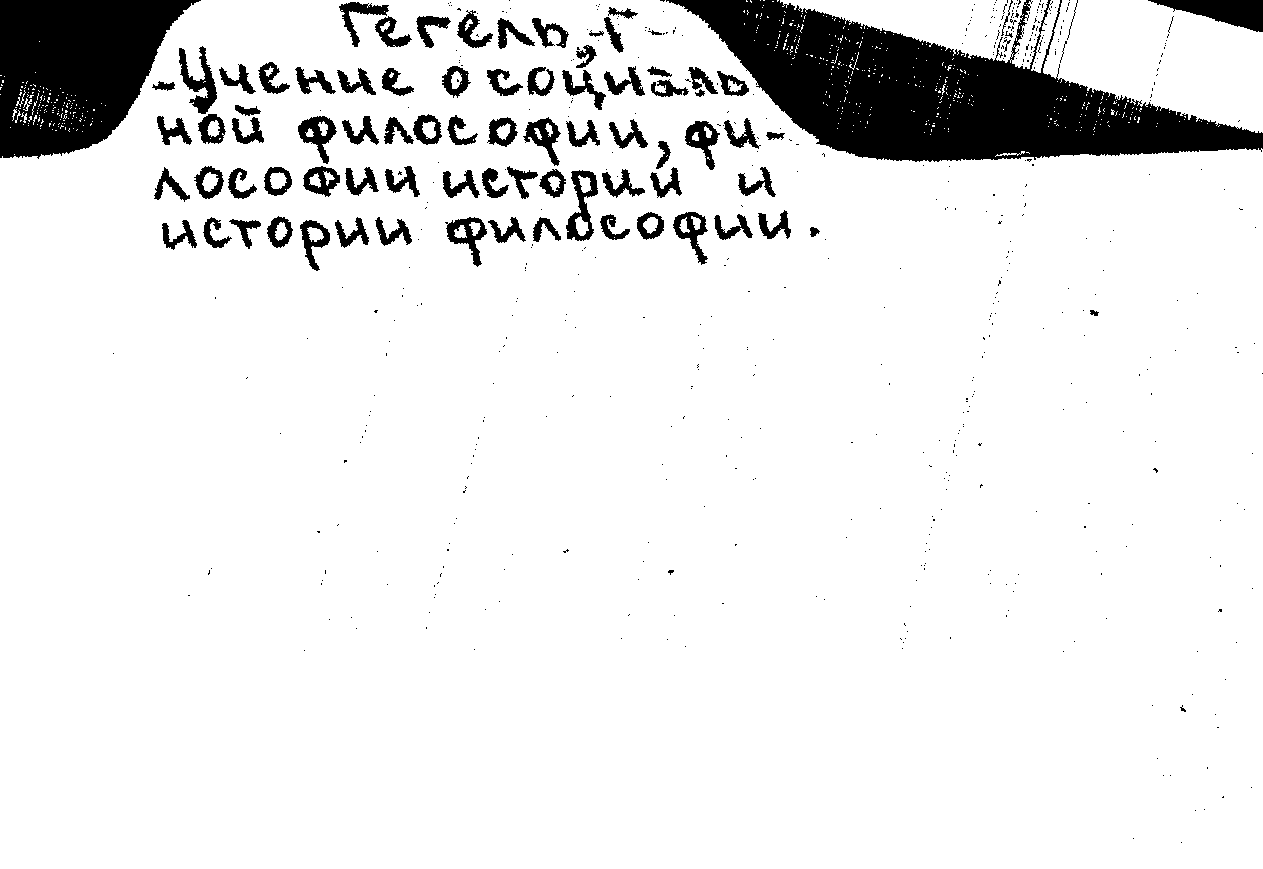 Гегель, Г
-Учение о социаль
ной философии, фи-
лософии истории и
истории философии.